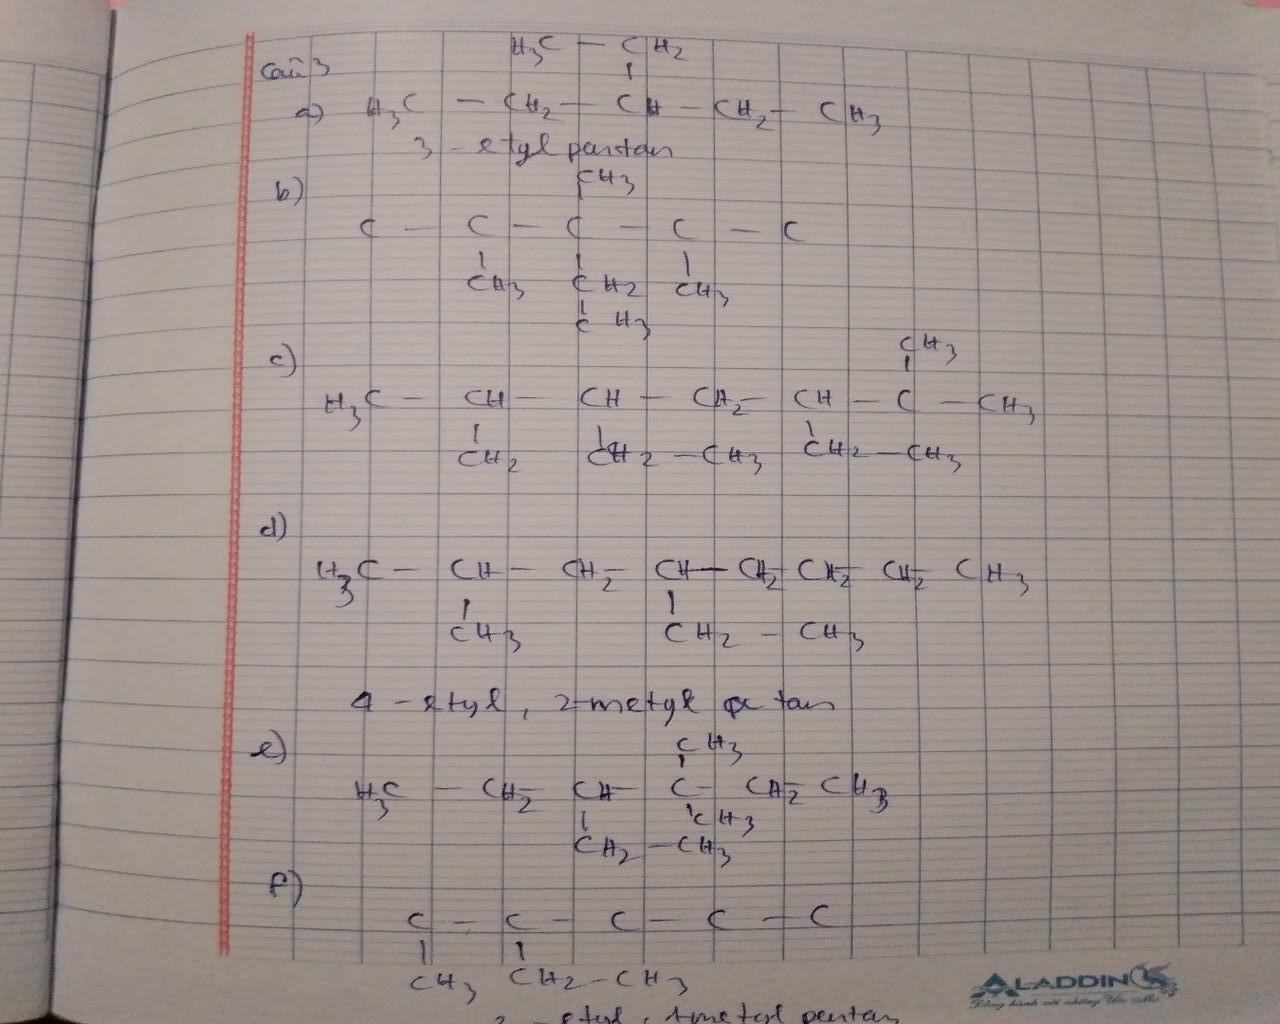 Câu 3
H3C — CH2
a) H3C — CH2 — CH — CH2 — CH3
3 - etyl pentan
b) CH3
C — C — C — C — C
CH3 CH2 CH3
CH3
c) CH3
H3C — CH — CH — CH2 — CH — C — CH3
CH2 CH2 — CH3 CH2 — CH3
d)
H3C — CH — CH2 — CH — CH2 — CH2 — CH2 — CH3
CH3 CH2 — CH3
4 - etyl, 2-metyl octan
e) CH3
H3C — CH2 — CH — C — CH2 — CH3
CH3
CH2 — CH3
f)
C — C — C — C — C
CH3 CH2 — CH3
ALADDIN
etyl, 1metyl pentan